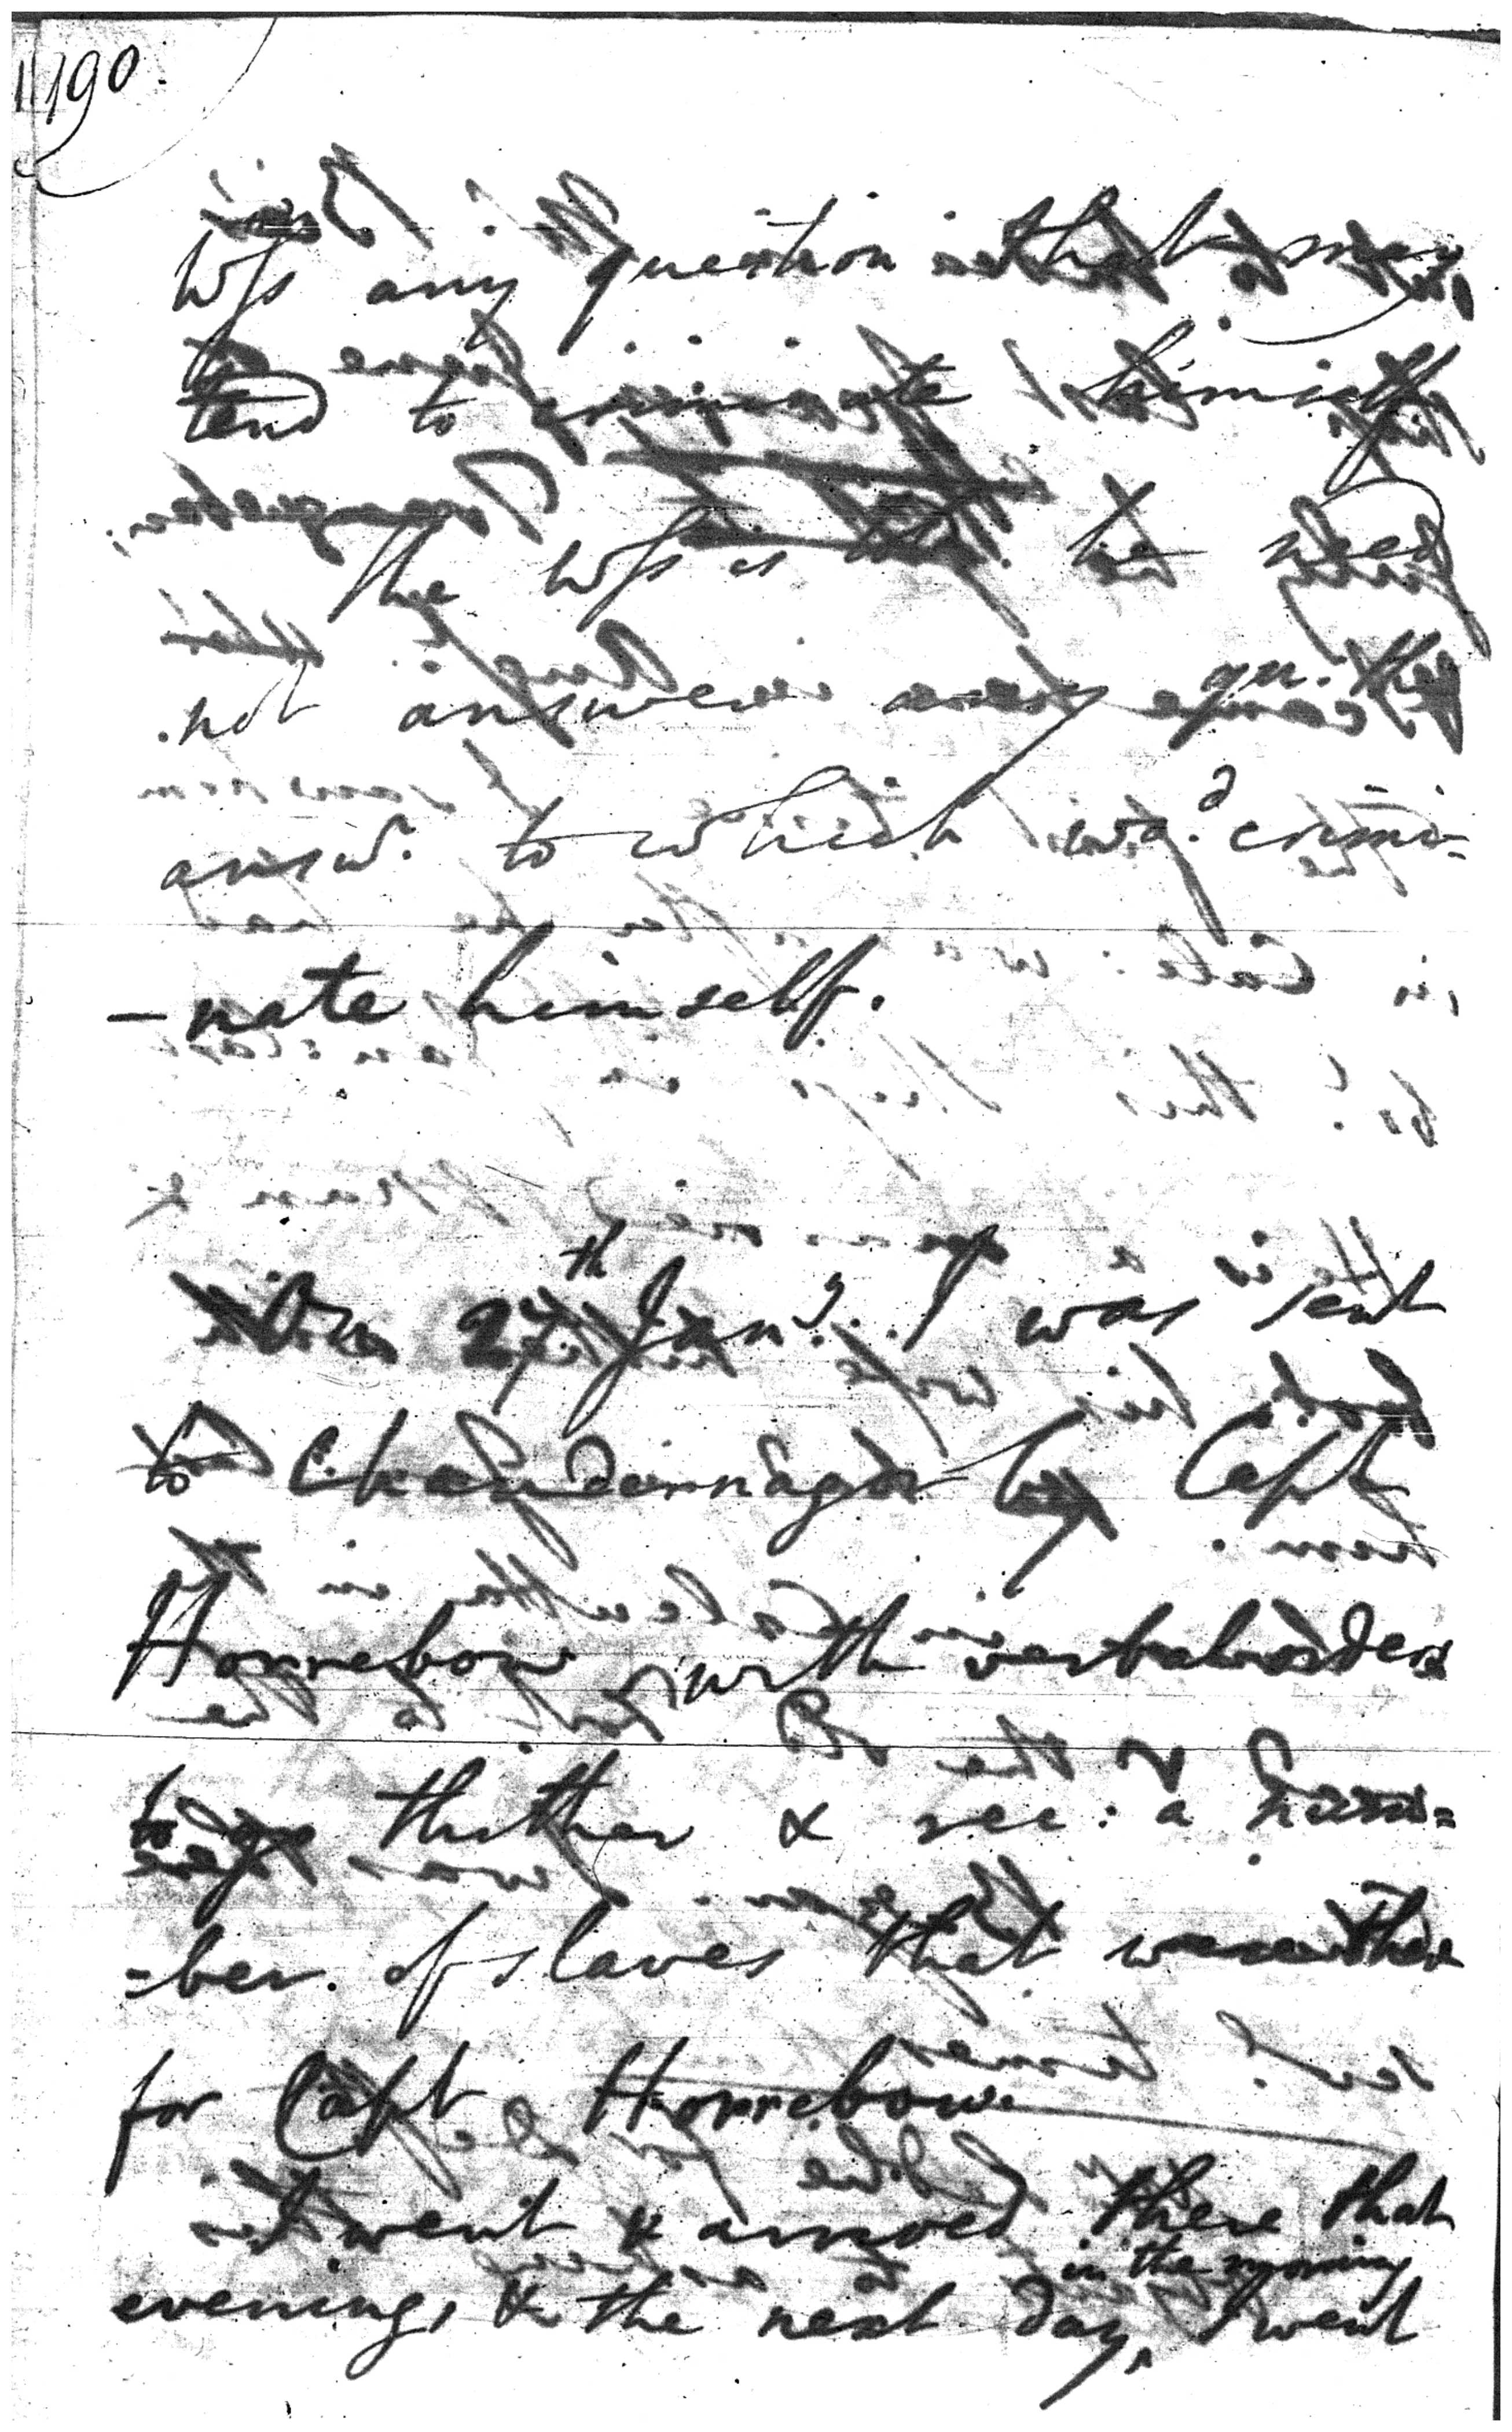 190.
Wss any question that may
tend to criminate himself
The Wss is told he need
not answer any qu: the
answ.r to which wo.d crimi-
-nate himself.
On 27th Jany. I was sent
to Chandernagor by Capt
Horrebow with verbal orders
to go thither & rec: a num=
=ber of slaves that were there
for Capt Horrebow.
I went & arrived there that
evening, & the next day, in the morning I went